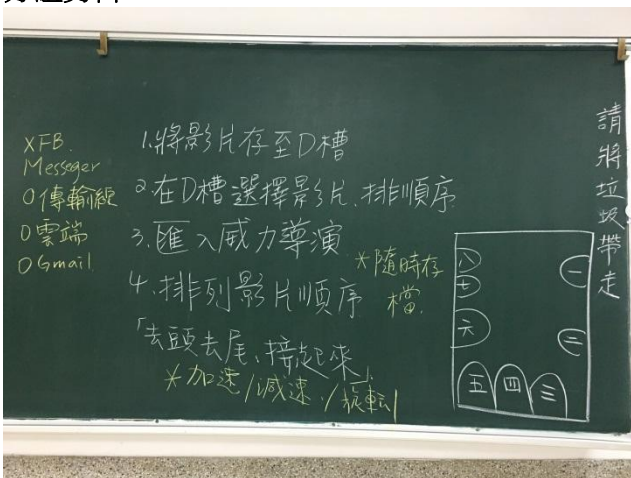 XFB.
Messeger
O傳輸線
O雲端
OGmail
1.將影片存至D槽
2.在D槽選擇影片、排順序
3.匯入威力導演
*隨時存
檔.
4.排列影片順序
「去頭去尾、接起來」
*加速/減速/旋転
請將垃圾帶走
八
七
六
五
四
三
二
一